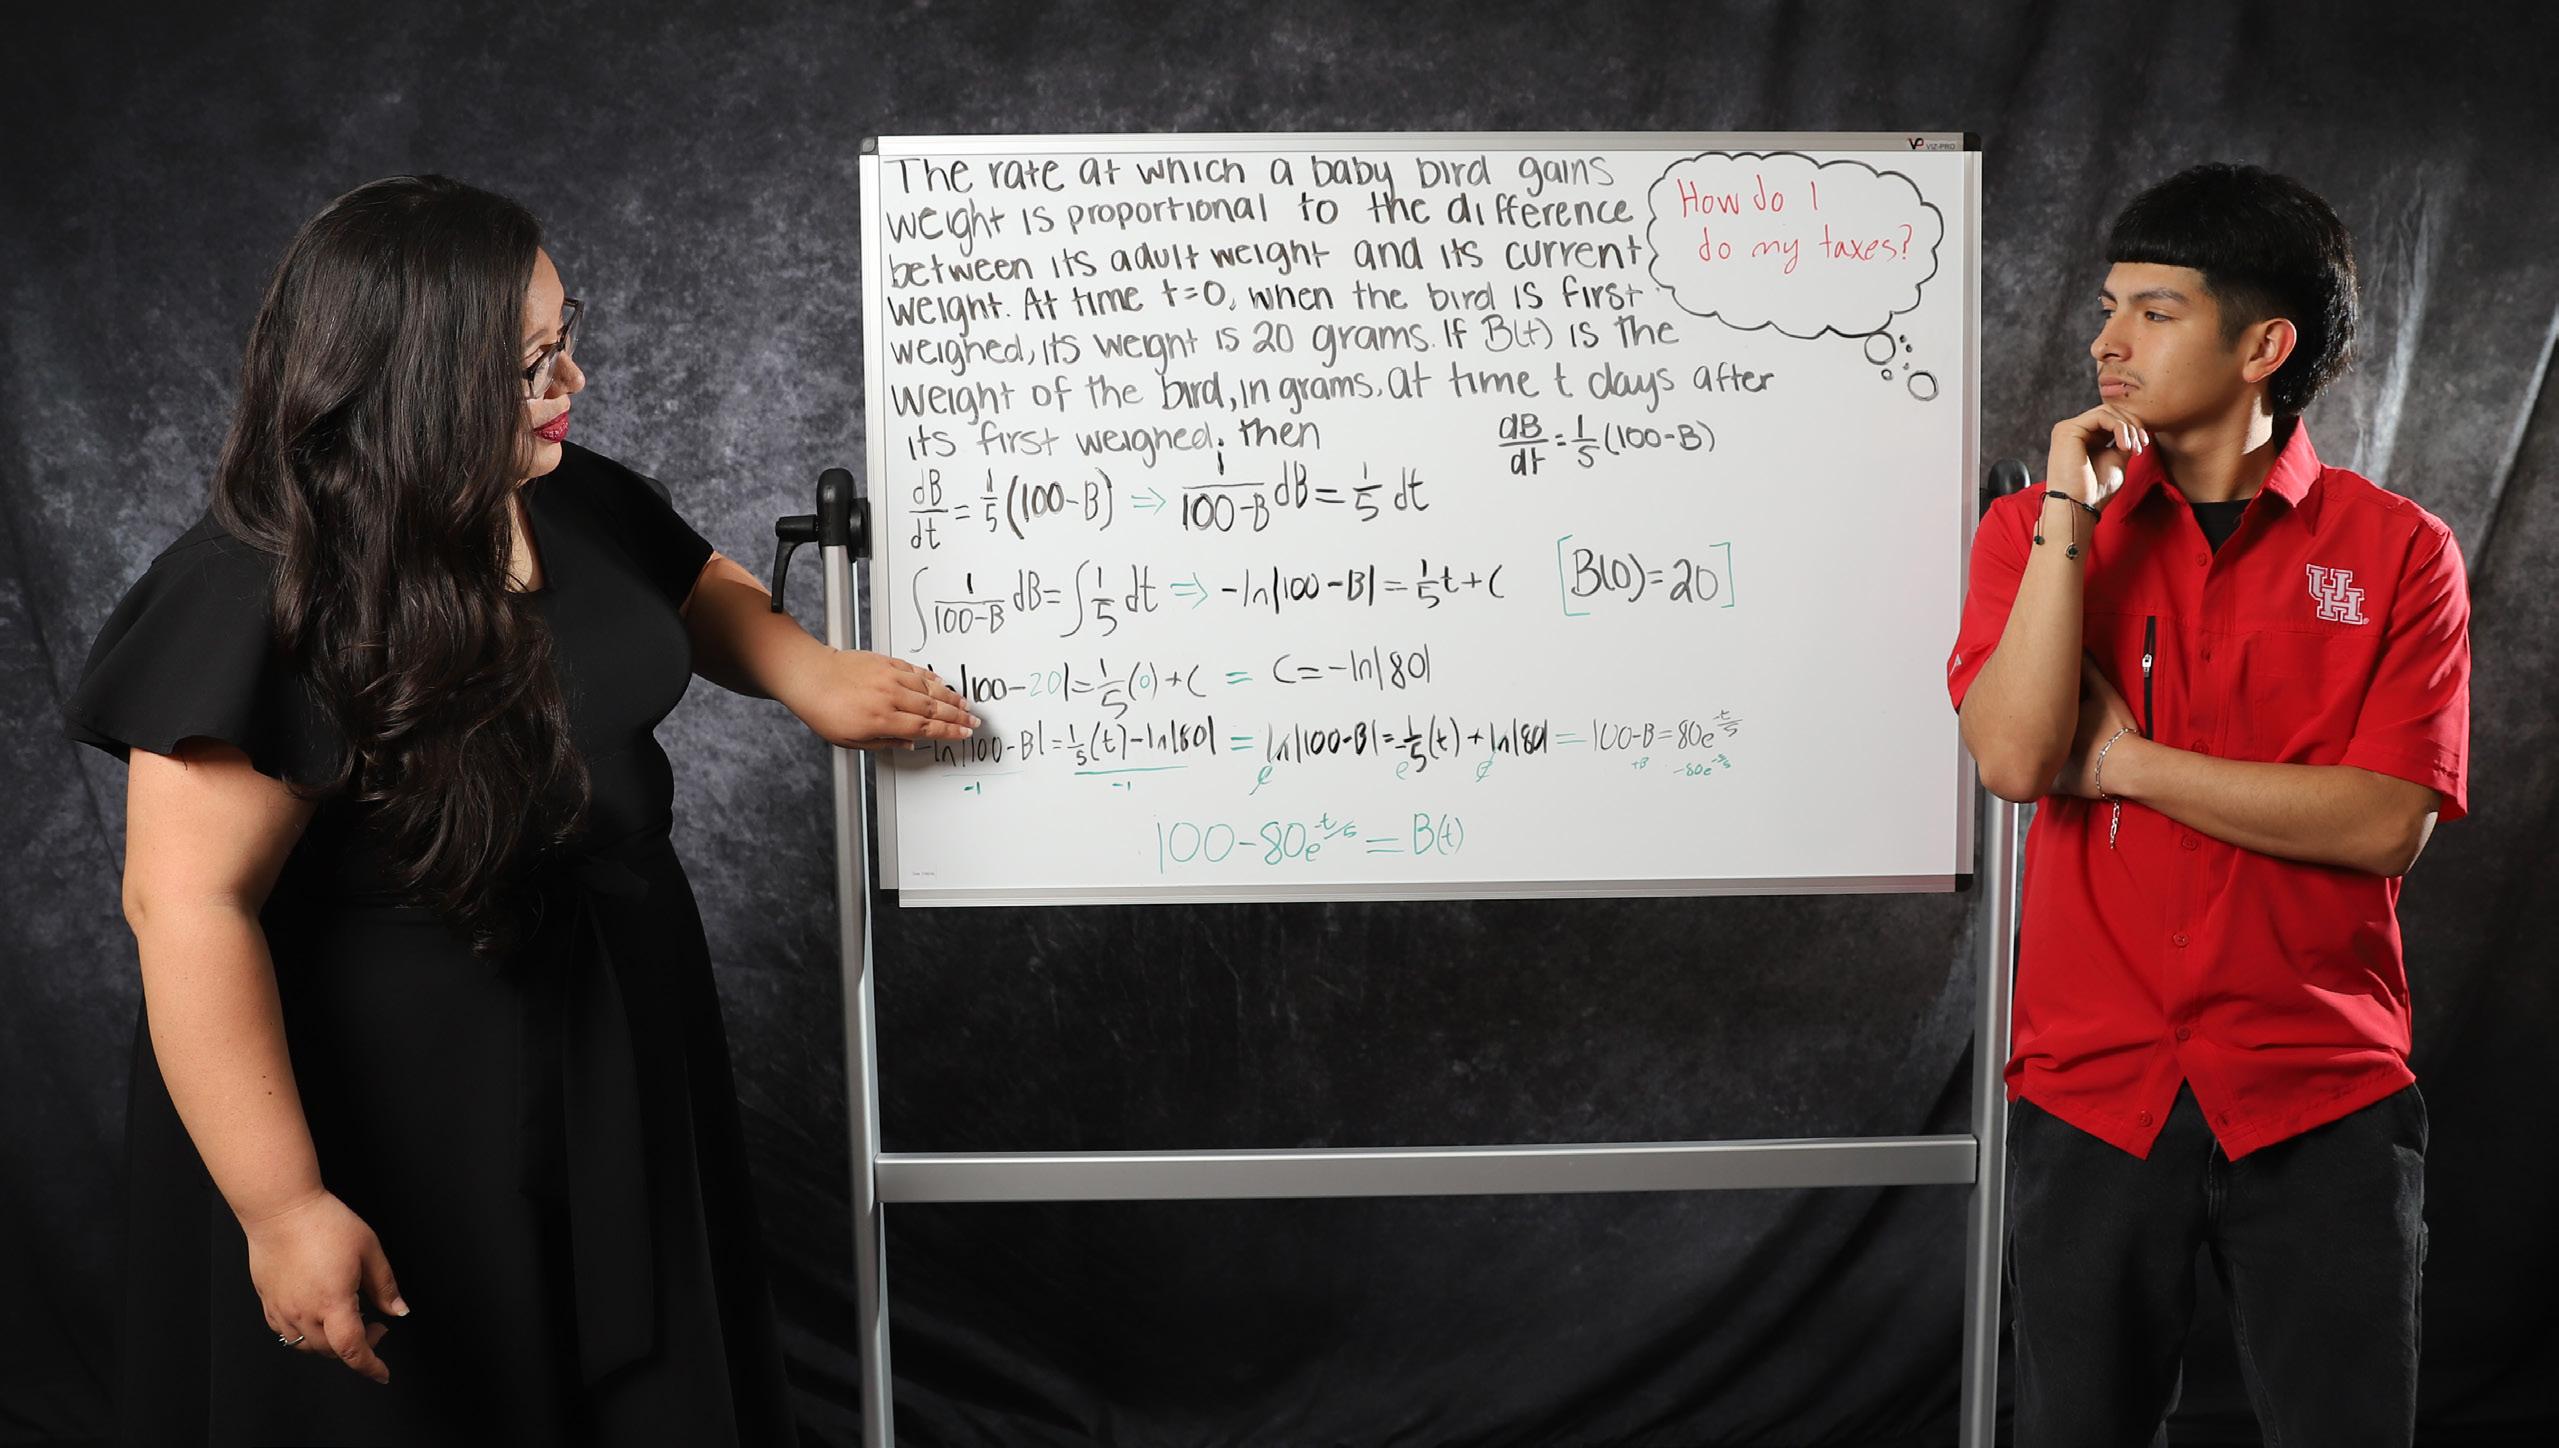 VP VIZ-PRO
The rate at which a baby bird gains
weight is proportional to the difference
between its adult weight and its current
weight. At time t=0, when the bird is first
weighed, its weight is 20 grams. If B(t) is the
weight of the bird, in grams, at time t days after
its first weighed, then
How do I
do my taxes?
dB/dt = 1/5 (100-B)
dB/dt = 1/5 (100-B) ⇒ 1/(100-B) dB = 1/5 dt
∫ 1/(100-B) dB = ∫ 1/5 dt ⇒ -ln|100-B| = 1/5 t + C
[B(0)=20]
|100-20| = 1/5 (0) + C = C = -ln|80|
-ln|100-B| = 1/5 (t) - ln|80| = ln|100-B| = -1/5 (t) + ln|80| = 100-B = 80e^-t/5
-1 -1 e e e +B -80e
100-80e^-t/5 = B(t)
UH